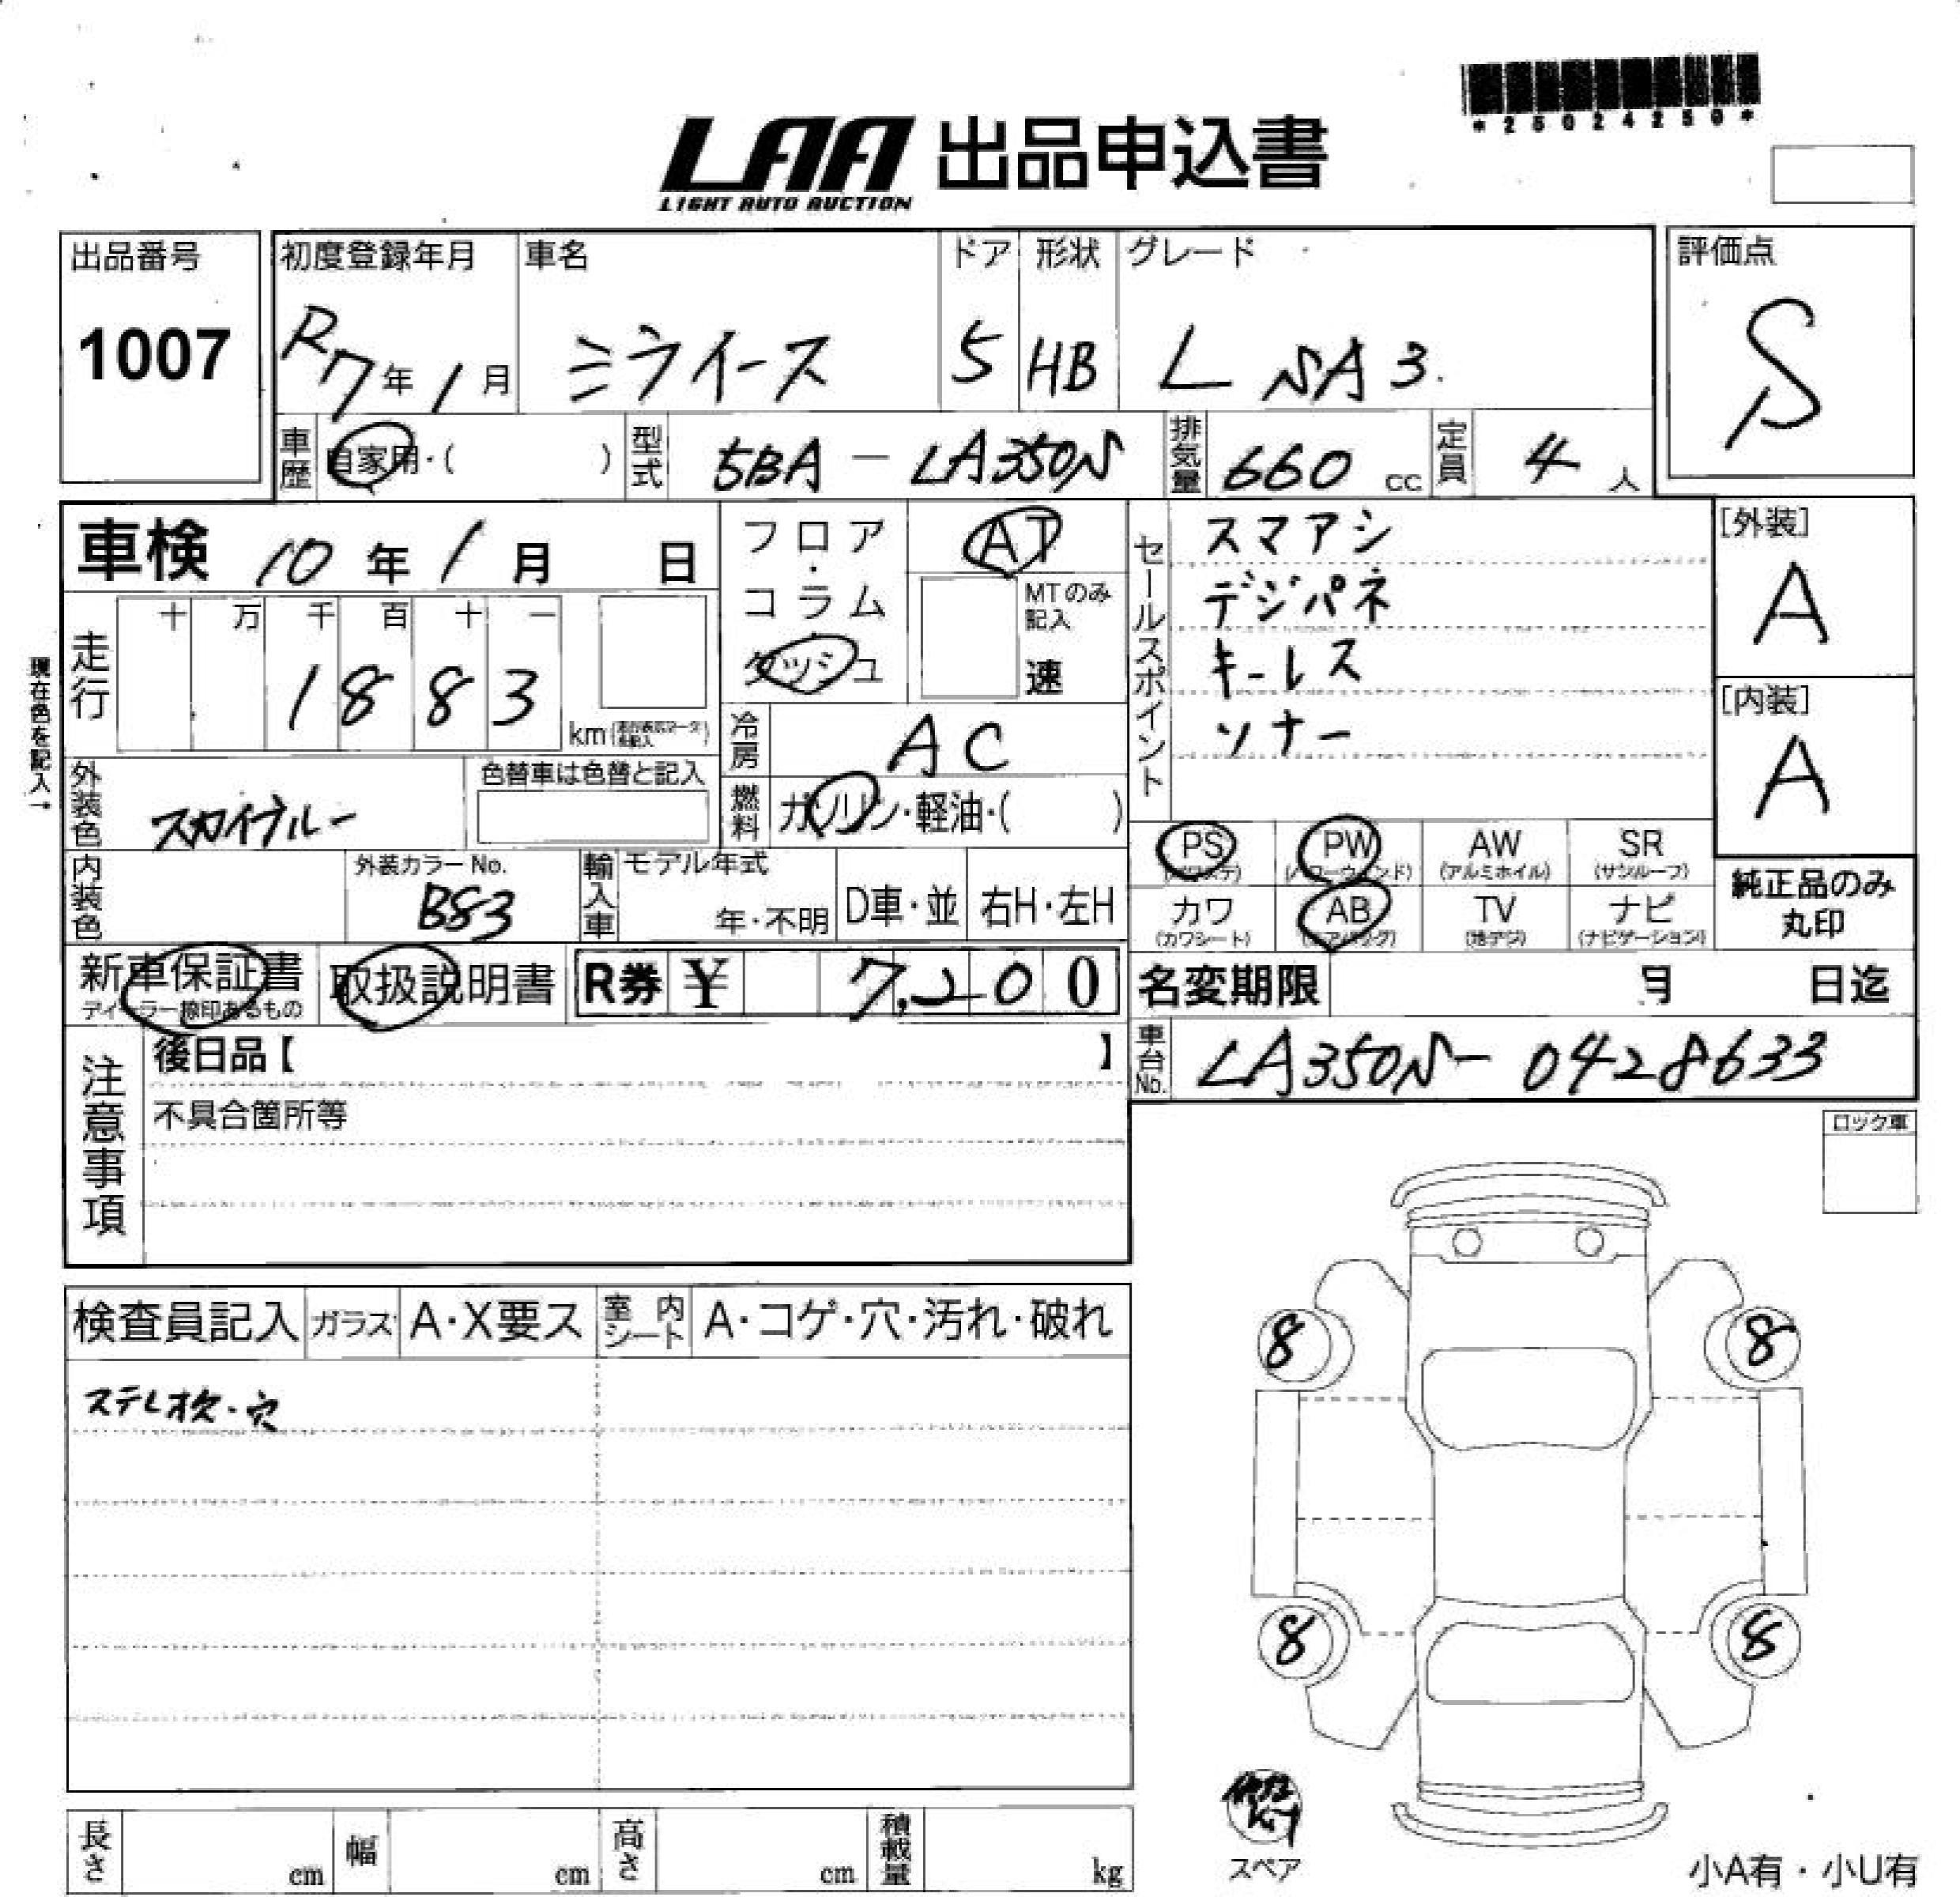 *25024250*
LAA 出品申込書
LIGHT AUTO AUCTION
出品番号 初度登録年月 車名 ドア 形状 グレード 評価点
1007 R7年1月 ミライース 5 HB L SA3. S
車歴 自家用・( ) 型式 5BA-LA350S 排気量 660 cc 定員 4 人
車検 10年1月 日
フロア・コラム ダッシュ AT
MTのみ記入 速
走行 十 万 千 百 十 一
1883 km
現在色を記入→
冷房 AC
燃料 ガソリン・軽油・( )
セールスポイント
スマアシ
デジパネ
キーレス
ソナー
[外装]
A
[内装]
A
外装色 スカイブルー 色替車は色替と記入
内装色 外装カラーNo. B83
輸入車 モデル年式 年・不明 D車・並 右H・左H
PS (パワステ) PW (パワーウインド) AW (アルミホイル) SR (サンルーフ)
カワ (カワシート) AB (エアバッグ) TV (地デジ) ナビ (ナビゲーション)
純正品のみ
丸印
新車保証書 取扱説明書 R券 ¥ 7,200
ディーラー捺印あるもの
名変期限 月 日迄
車台No. LA350S-0428633
注意事項
後日品【 】
不具合箇所等
ロック車
検査員記入 ガラス A・X要ス 室内シート A・コゲ・穴・汚れ・破れ
ステレオ欠・穴
8 8
8 8
修理Kit
スペア
長さ cm 幅 cm 高さ cm 積載量 kg
小A有・小U有